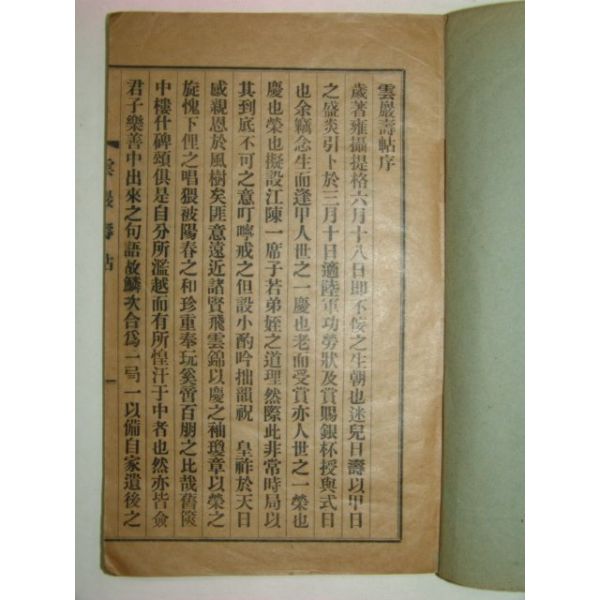 雲巖壽帖序
歲著雍攝提格六月十八日卽不佞之生朝也迷兒日壽以甲日
之盛炎引卜於三月十日適陸軍功勞狀及賞賜銀杯授與式日
也余竊念生而逢甲人世之一慶也老而受賞亦人世之一榮也
慶也榮也擬設江陳一席子若弟姪之道理然際此非常時局以
其到底不可之意叮嚀戒之但設小酌吟拙韻祝 皇祚於天日
感親恩於風樹矣匪意遠近諸賢飛雲錦以慶之袖瓊章以榮之
旋愧下俚之唱猥被陽春之和珍重奉玩奚啻百朋之比哉舊篋
中樓什碑頌俱是自分所濫越而有所惶汗于中者也然亦皆僉
君子樂善中出來之句語故鱗次合爲一局一以備自家遺後之
雲巖壽帖
一